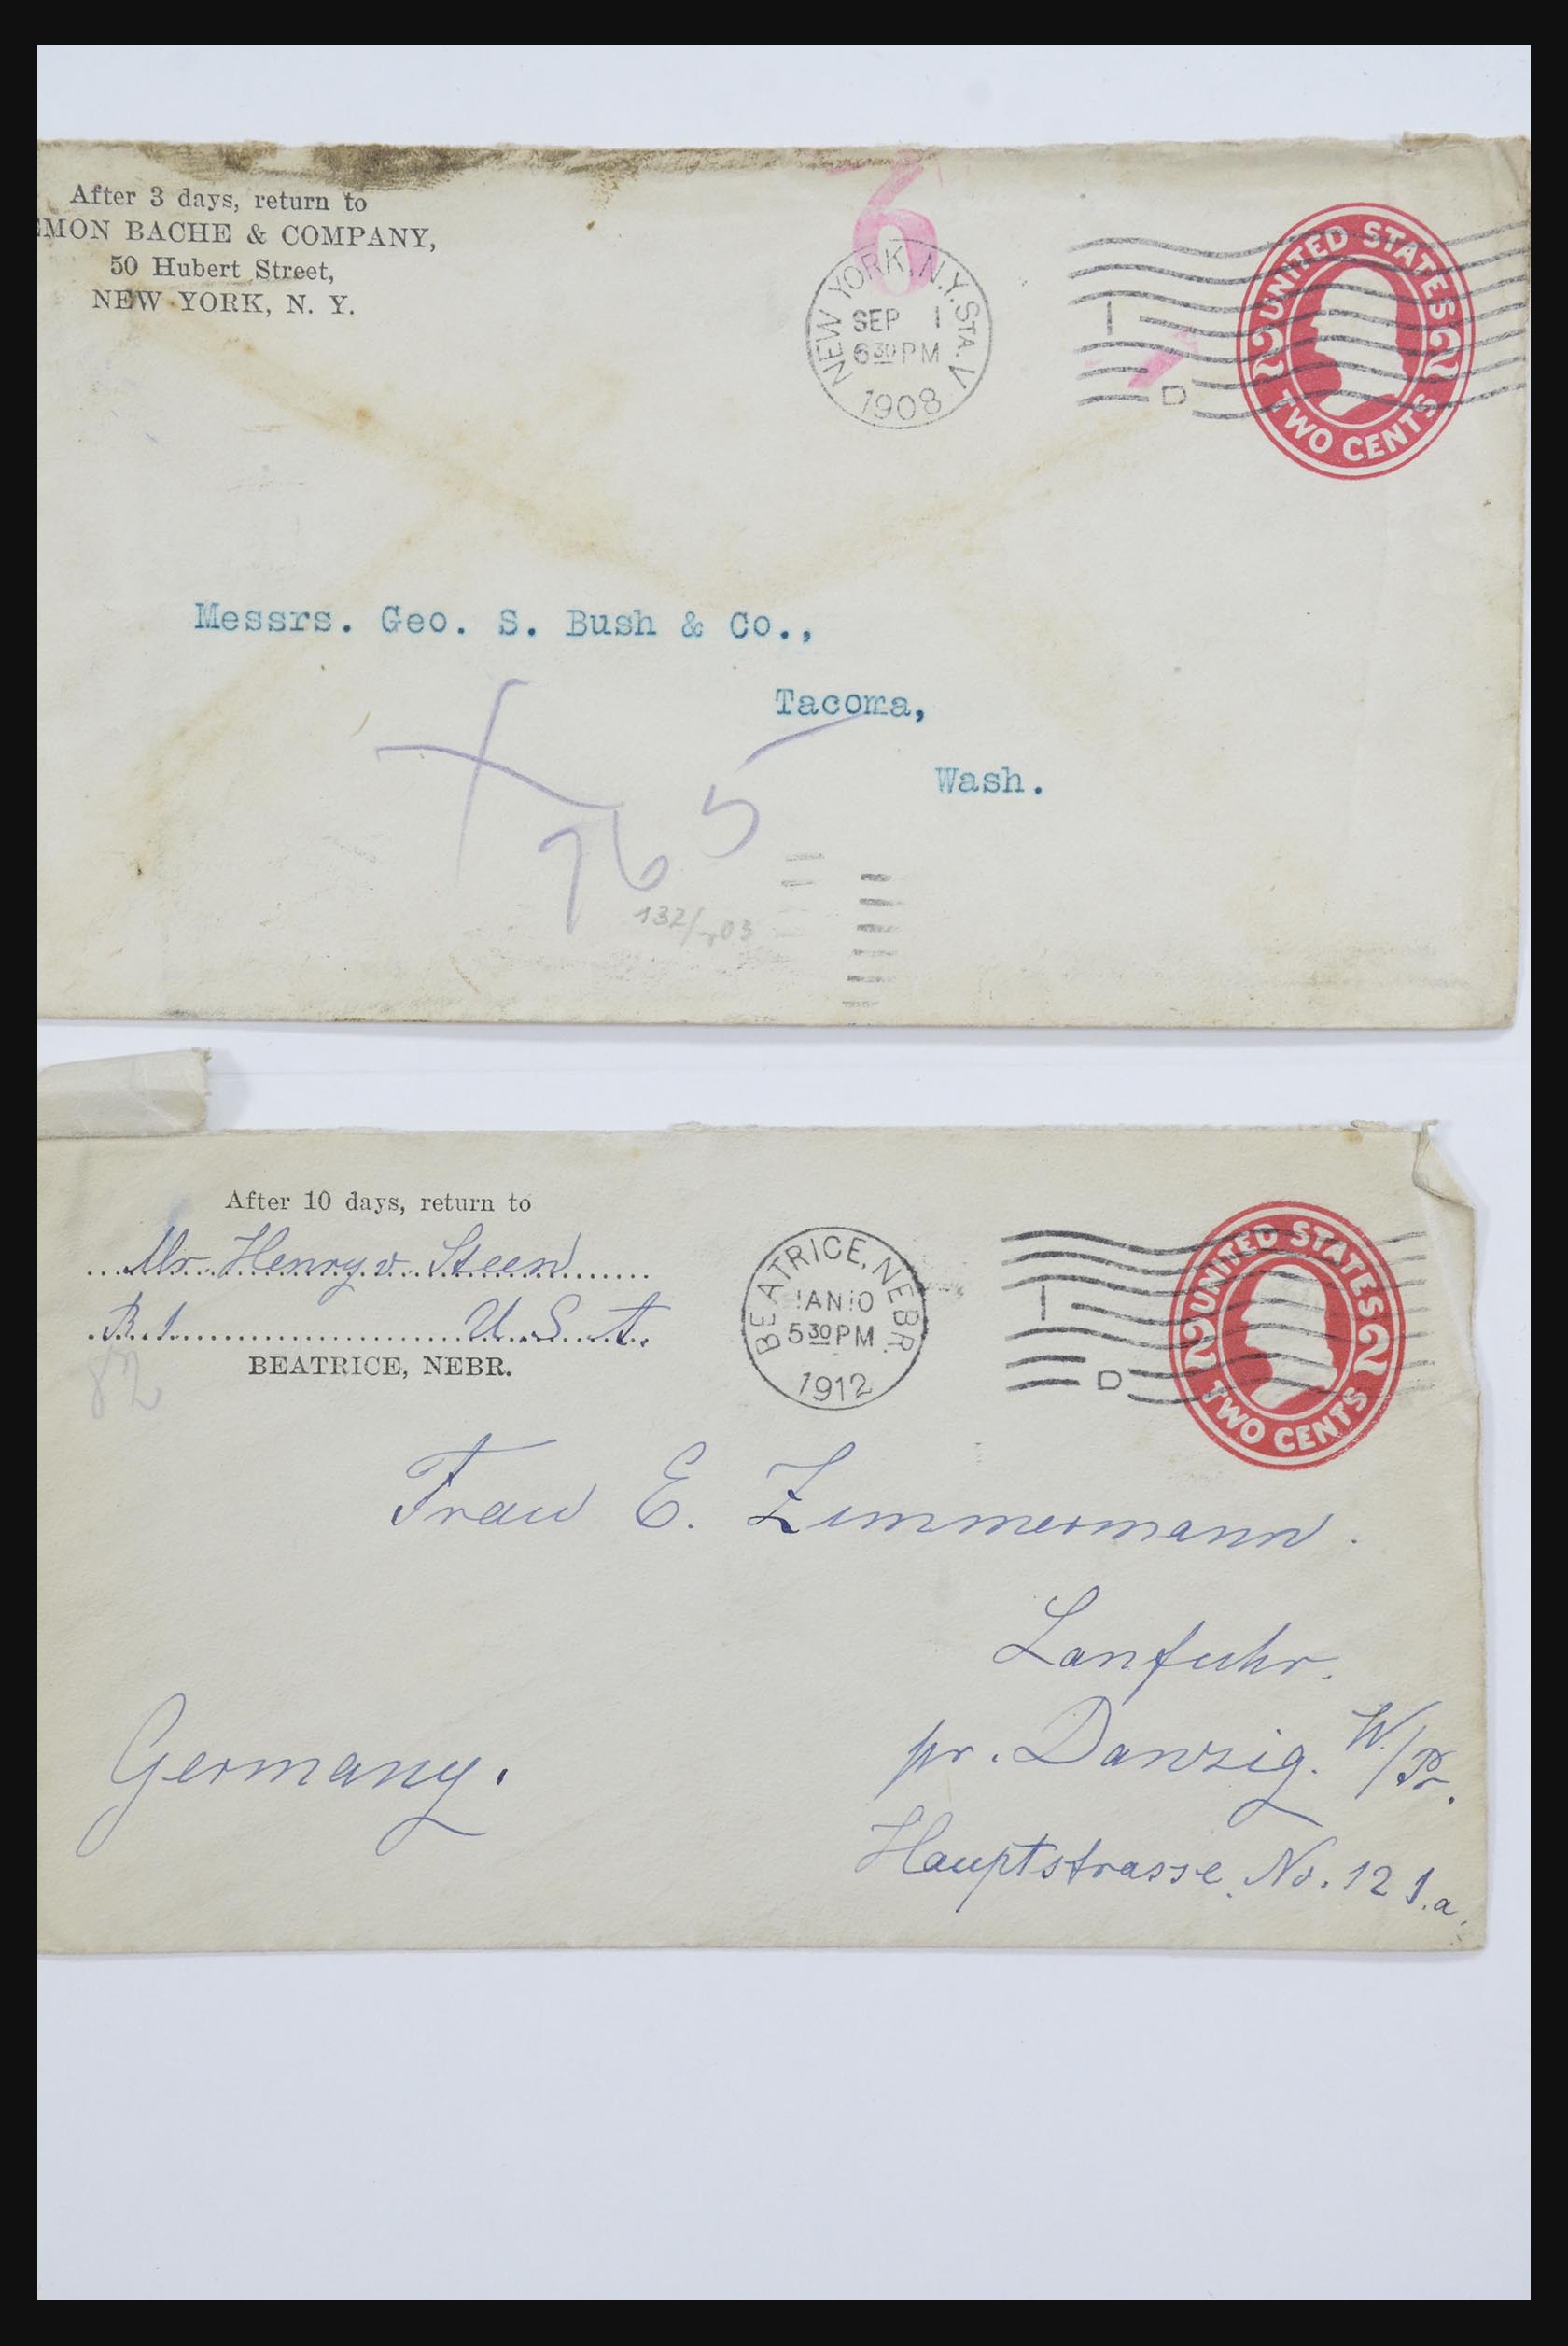 After 3 days, return to
MON BACHE & COMPANY,
50 Hubert Street,
NEW YORK, N. Y.
6
NEW YORK, N.Y. STA. V
SEP 1
6 30 PM
1908
1
D
UNITED STATES
2 2
TWO CENTS
Messrs. Geo. S. Bush & Co.,
Tacoma,
Wash.
765
132/-,03
After 10 days, return to
Mr. Henry v. Steen
R. 1. U. S. A.
BEATRICE, NEBR.
82
BEATRICE, NEBR.
JAN 10
5 30 PM
1912
1
D
UNITED STATES
2 2
TWO CENTS
Frau E. Zimmermann.
Lanfuhr.
pr. Danzig. W./Pr.
Germany.
Hauptstrasse No. 121.a.